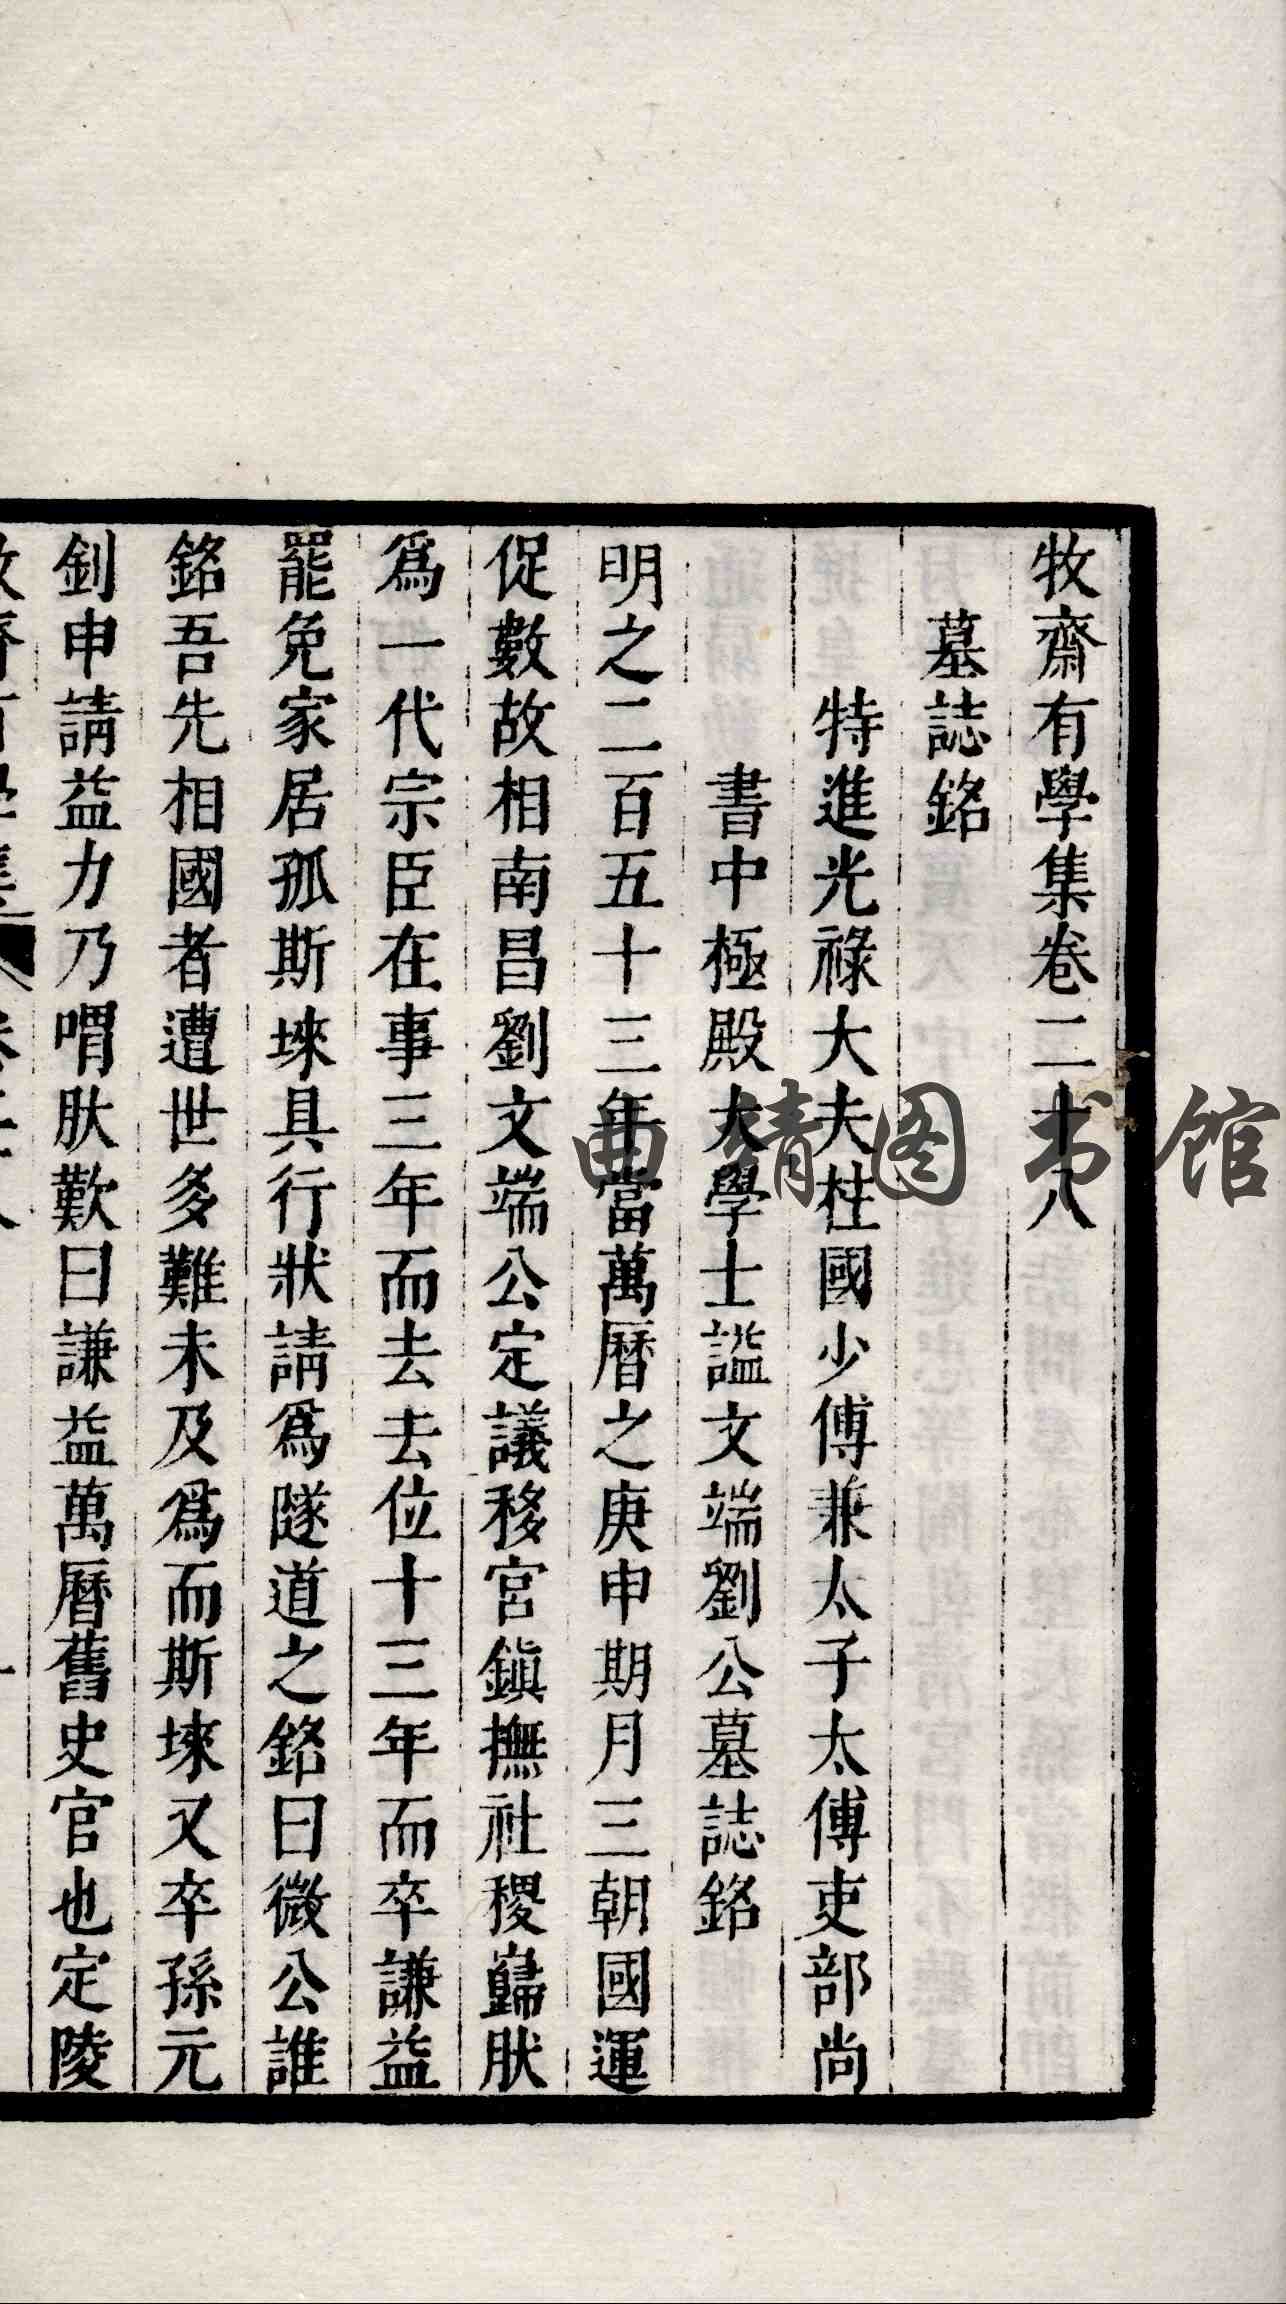 牧齋有學集卷二十八
墓誌銘
特進光祿大夫柱國少傅兼太子太傅吏部尚
書中極殿大學士謚文端劉公墓誌銘
明之二百五十三年當萬曆之庚申期月三朝國運
促數故相南昌劉文端公定議移宮鎭撫社稷巋肰
爲一代宗臣在事三年而去去位十三年而卒謙益
罷免家居孤斯埰具行狀請爲隧道之銘曰微公誰
銘吾先相國者遭世多難未及爲而斯埰又卒孫元
釗申請益力乃喟肰歎曰謙益萬曆舊史官也定陵
曲靖图书馆